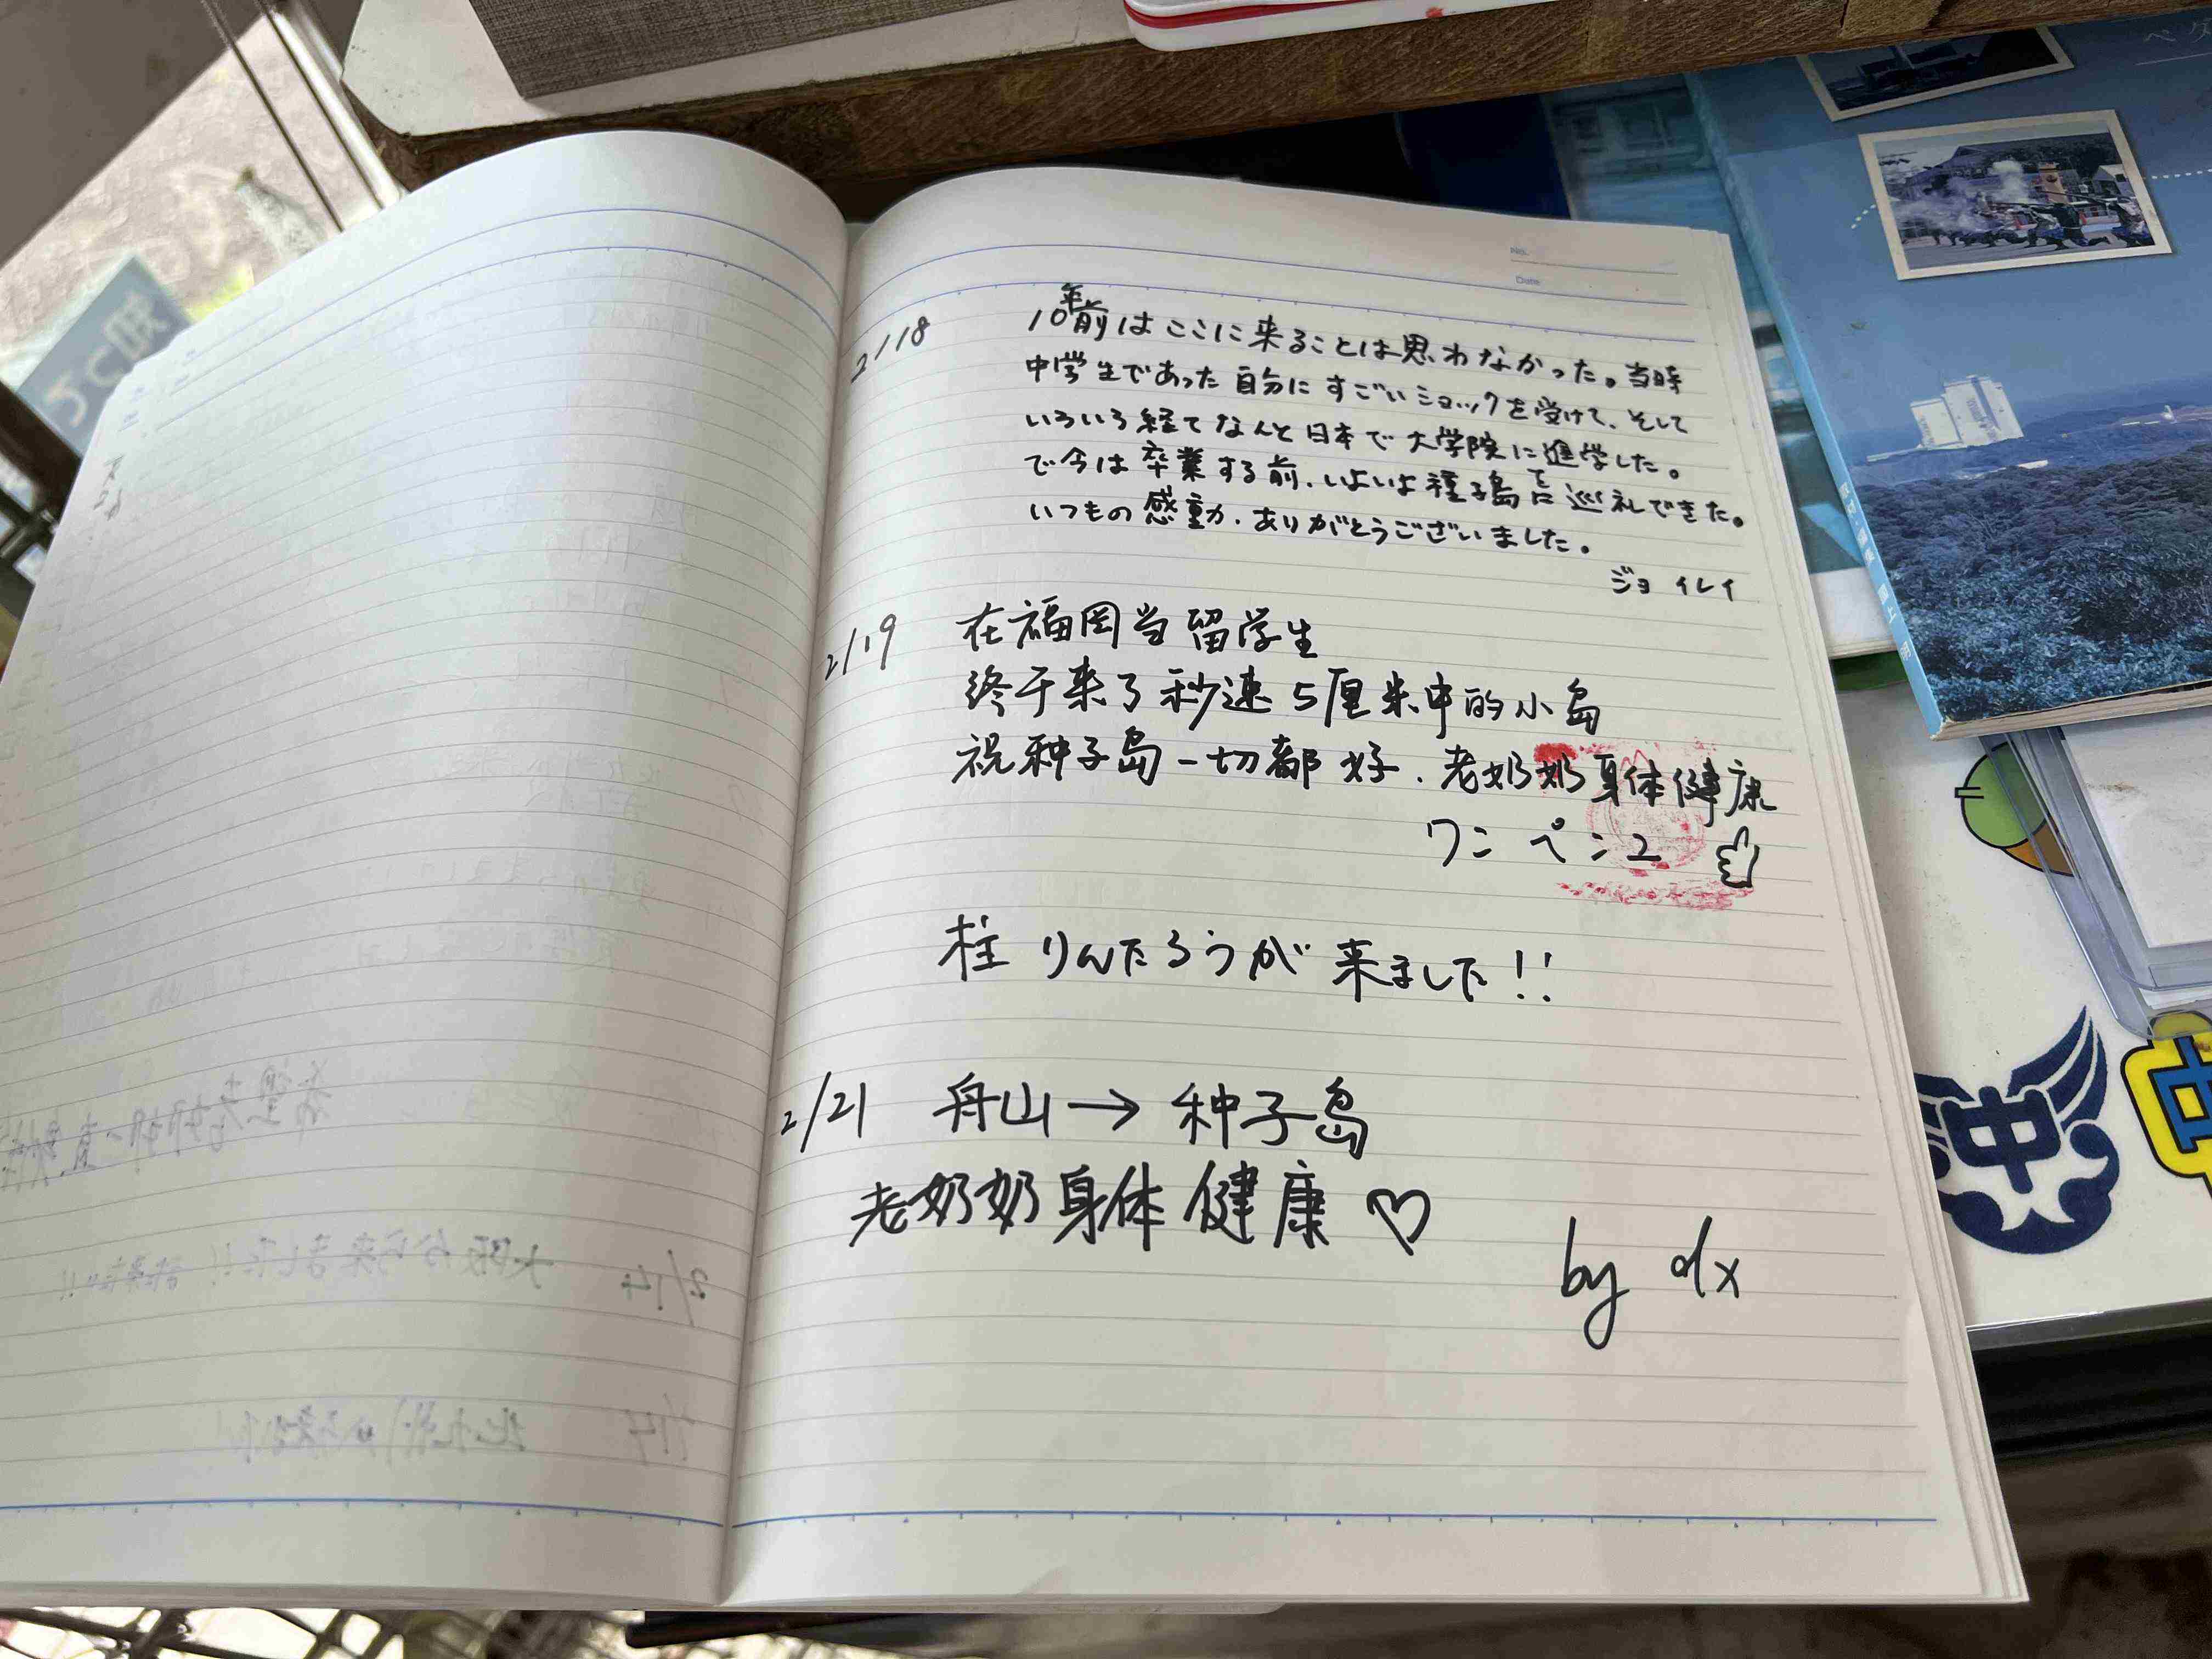 No.
Date
2/18
10年前はここに来ることは思わなかった。当時
中学生であった自分にすごいショックを受けて、そして
いろいろ経てなんと日本で大学院に進学した。
で今は卒業する前、いよいよ種子島を巡礼できた。
いつもの感動、ありがとうございました。
ジョイレイ
2/19 在福岡当留学生
终于来了秒速5厘米中的小岛
祝种子岛一切都好．老奶奶身体健康
ワンペンユ
柱 りんたろうが来ました!!
2/21 舟山→种子岛
老奶奶身体健康♡
by dx
2/14 大阪から来ました!!
中